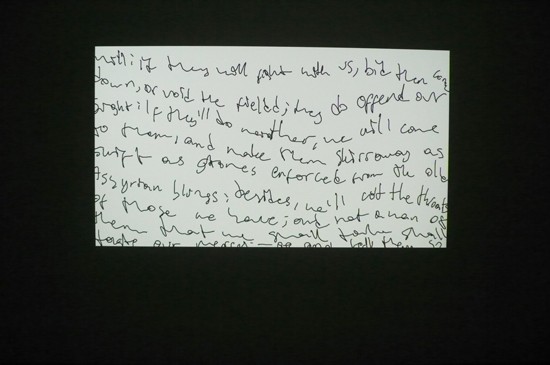 hill: if they will fight with us, bid them come
down, or void the field; they do offend our
sight: if they'll do neither, we will come
to them, and make them skirr away as
swift as stones enforced from the old
Assyrian slings: besides, we'll cut the throats
of those we have; and not a man of
them that we shall take shall
taste our mercy.— go and tell them so